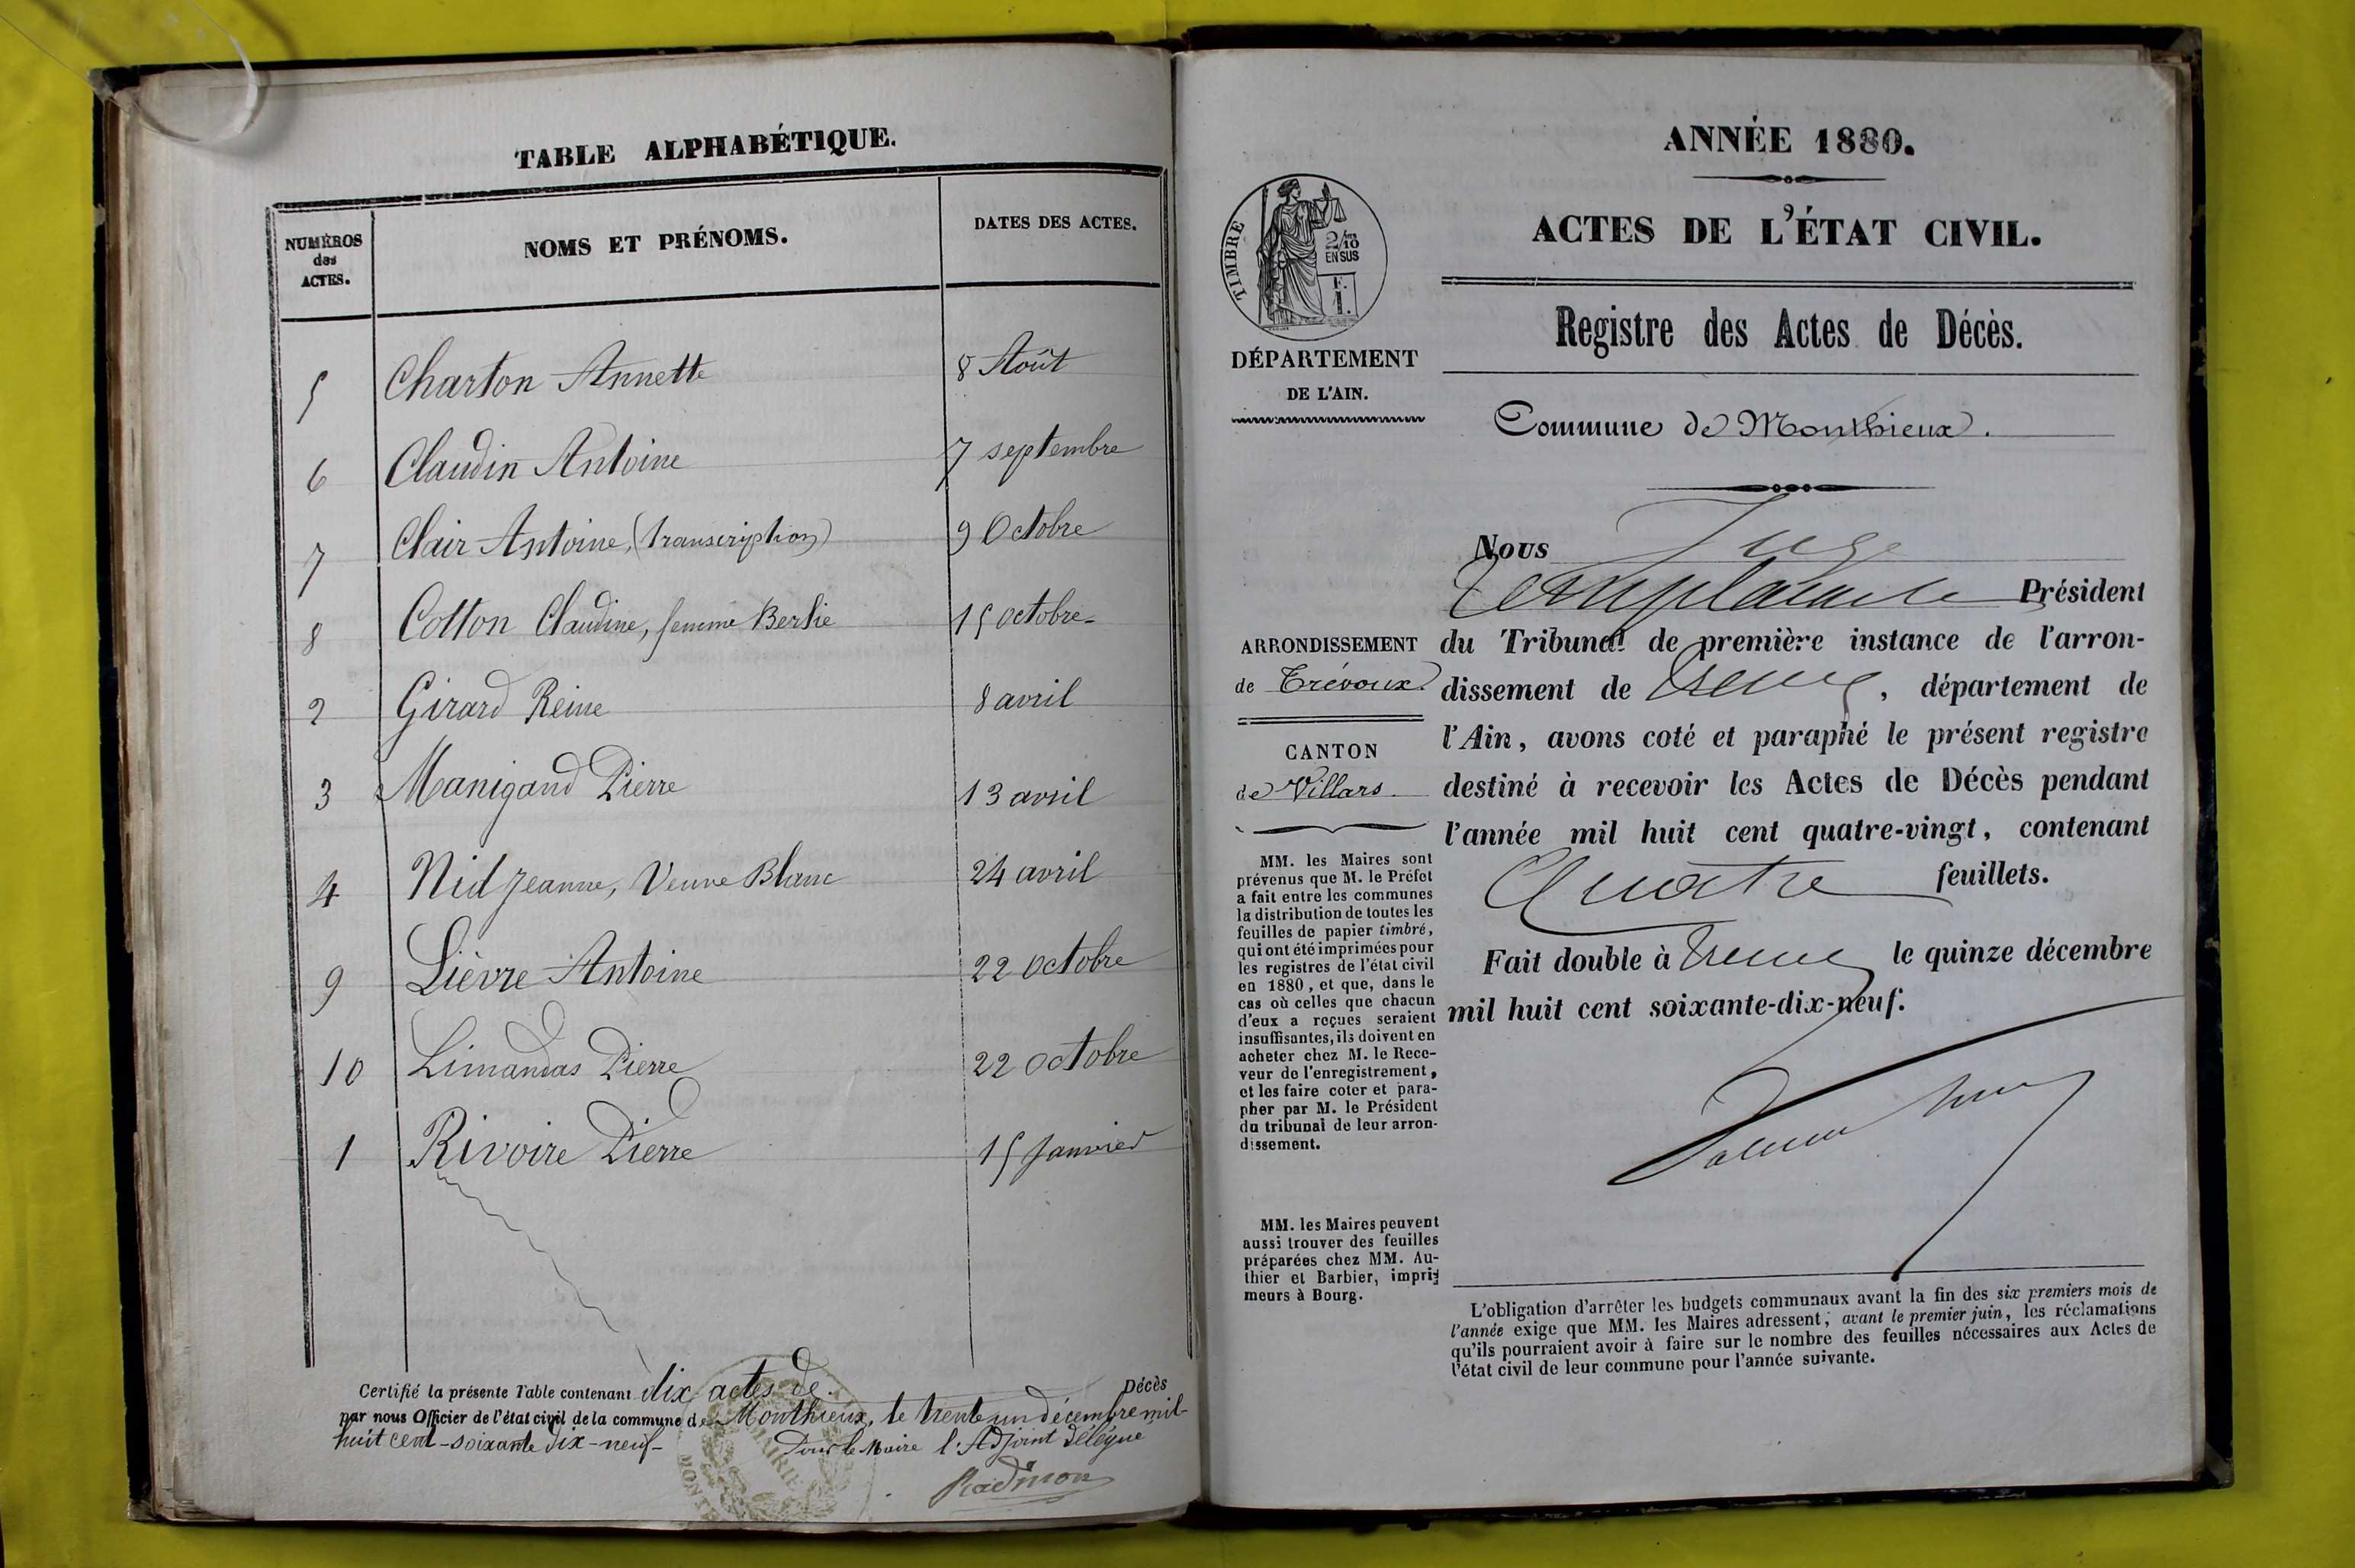 TABLE ALPHABÉTIQUE.
NUMÉROS
des
ACTES.
NOMS ET PRÉNOMS.
DATES DES ACTES.
5 Charton Annette 8 Août
6 Claudin Antoine 7 septembre
7 Clair Antoine, (transcription) 9 Octobre
8 Cotton Claudine, femme Berlie 15 octobre
2 Girard Reine 8 avril
3 Manigand Pierre 13 avril
4 Nid Jeanne, Veuve Blanc 24 avril
9 Lièvre Antoine 22 octobre
10 Limandas Pierre 22 octobre
1 Rivoire Pierre 15 Janvier
Certifié la présente Table contenant dix actes de Décès
par nous Officier de l'état civil de la commune de Monthieux, le trente un décembre mil
huit cent-soixante dix-neuf-
Pour le Maire l'Adjoint délégué
ANNÉE 1880.
ACTES DE L'ÉTAT CIVIL.
Registre des Actes de Décès.
TIMBRE
2/10
EN SUS
F.
1.
DÉPARTEMENT
DE L'AIN.
Commune de Monthieux.
ARRONDISSEMENT
de Trévoux.
CANTON
de Villars.
MM. les Maires sont
prévenus que M. le Préfet
a fait entre les communes
la distribution de toutes les
feuilles de papier timbré,
qui ont été imprimées pour
les registres de l'état civil
en 1880, et que, dans le
cas où celles que chacun
d'eux a reçues seraient
insuffisantes, ils doivent en
acheter chez M. le Rece-
veur de l'enregistrement,
et les faire coter et para-
pher par M. le Président
du tribunal de leur arron-
dissement.
MM. les Maires peuvent
aussi trouver des feuilles
préparées chez MM. Au-
thier et Barbier, impri-
meurs à Bourg.
Nous Juge
Président
du Tribunal de première instance de l'arron-
dissement de , département de
l'Ain, avons coté et paraphé le présent registre
destiné à recevoir les Actes de Décès pendant
l'année mil huit cent quatre-vingt, contenant
Quatre feuillets.
Fait double à le quinze décembre
mil huit cent soixante-dix-neuf.
L'obligation d'arrêter les budgets communaux avant la fin des six premiers mois de
l'année exige que MM. les Maires adressent, avant le premier juin, les réclamations
qu'ils pourraient avoir à faire sur le nombre des feuilles nécessaires aux Actes de
l'état civil de leur commune pour l'année suivante.